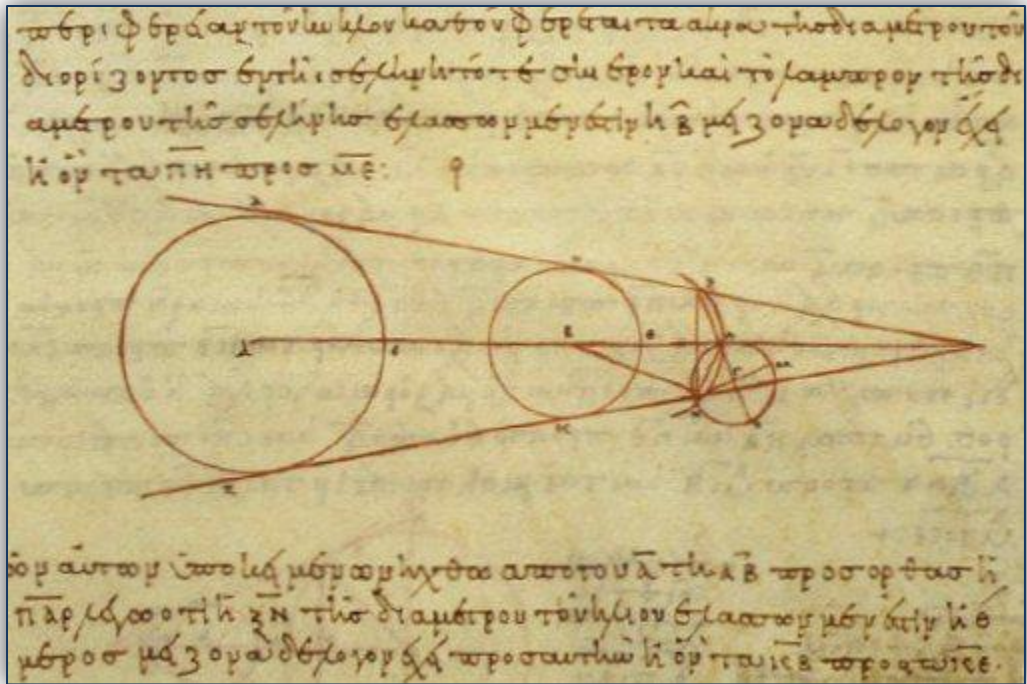 τὸν κύκλον καθ ὃν φέρεται τὰ ἄκρα τῆς διαμέτρου τοῦ
διορίζοντος ἐν τῆι σελήνηι τό τε σκιερὸν καὶ τὸ λαμπρὸν τῆς δι
αμέτρου τῆς σελήνης ἐλάσσων μέν ἐστιν ἢ β̄ μείζονα δὲ λόγον ἔχει
ἢ ὃν τὰ π̄η̄ πρὸς μ̄ε̄:
αὐτῶν ὑποκειμένων ἤχθω ἀπὸ τοῦ ᾱ τῆι ᾱβ̄ πρὸς ὀρθὰς ἡ
π̄ᾱρ̄ λέγω ὅτι ἡ ξ̄ν̄ τῆς διαμέτρου τοῦ ἡλίου ἐλάσσων μέν ἐστιν ἢ θ
μέρος μείζονα δὲ λόγον ἔχει πρὸς αὐτὴν ἢ ὃν τὰ κ̄β̄ πρὸς